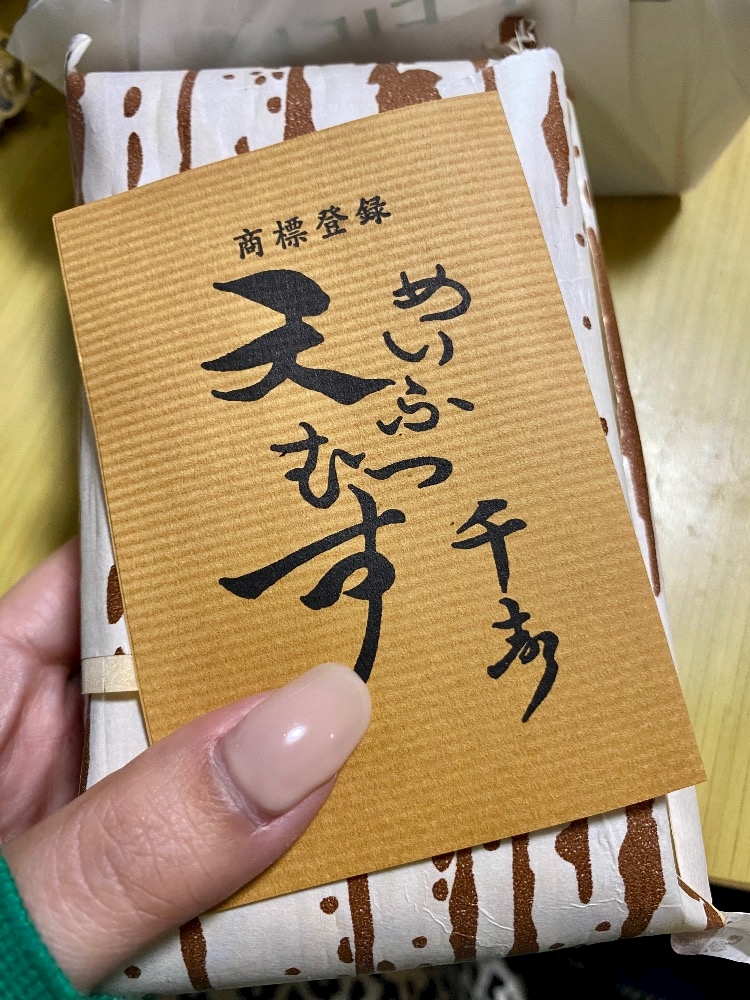 商標登録
めいふつ
天むす
千寿